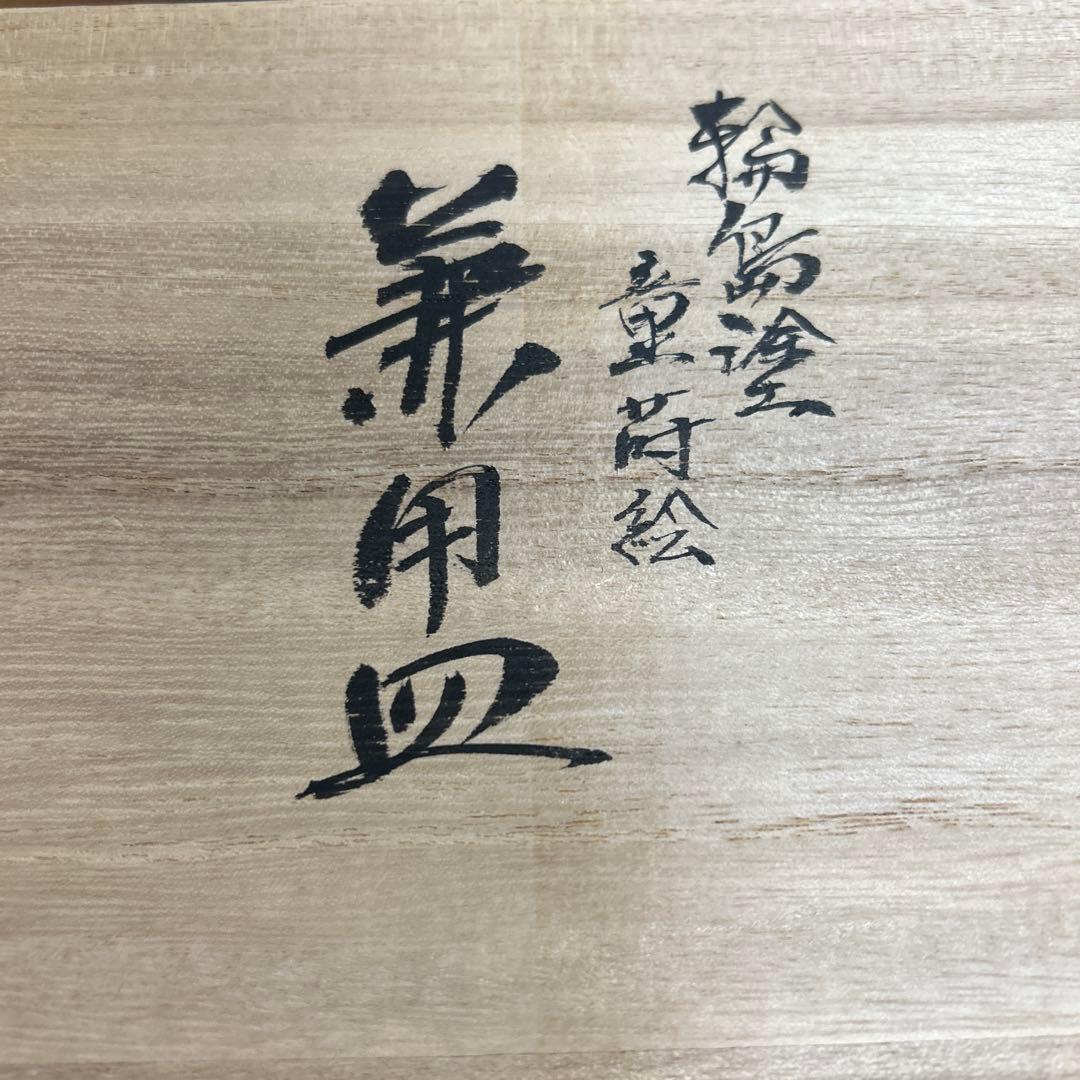 輪島塗
童蒔絵
兼用皿